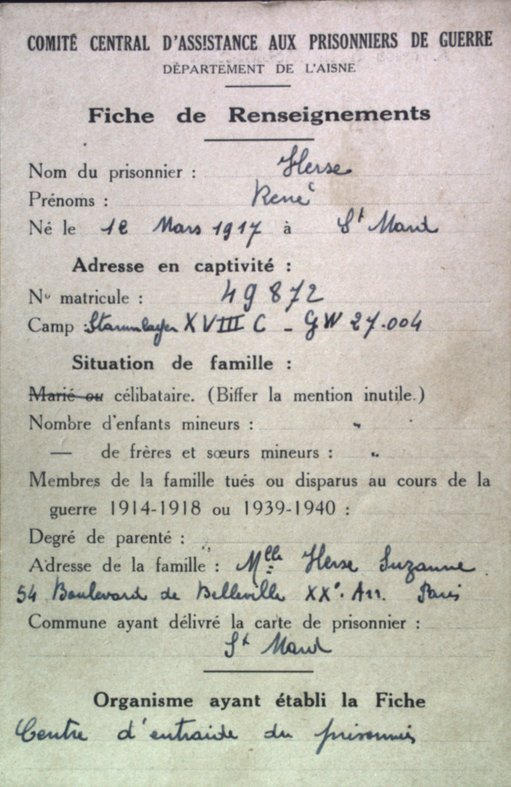 COMITÉ CENTRAL D'ASSISTANCE AUX PRISONNIERS DE GUERRE
DÉPARTEMENT DE L'AISNE
Fiche de Renseignements
Nom du prisonnier : Herse
Prénoms : René
Né le 12 Mars 1917 à St Mard
Adresse en captivité :
No matricule : 49872
Camp : Stammlager XVIII C - GW 27.004
Situation de famille :
Marié ou célibataire. (Biffer la mention inutile.)
Nombre d'enfants mineurs : "
— de frères et sœurs mineurs : "
Membres de la famille tués ou disparus au cours de la
guerre 1914-1918 ou 1939-1940 :
Degré de parenté :
Adresse de la famille : Mlle Herse Suzanne
54 Boulevard de Belleville XXe. Arr. Paris
Commune ayant délivré la carte de prisonnier :
St Mard
Organisme ayant établi la Fiche
Centre d'entraide du prisonnier